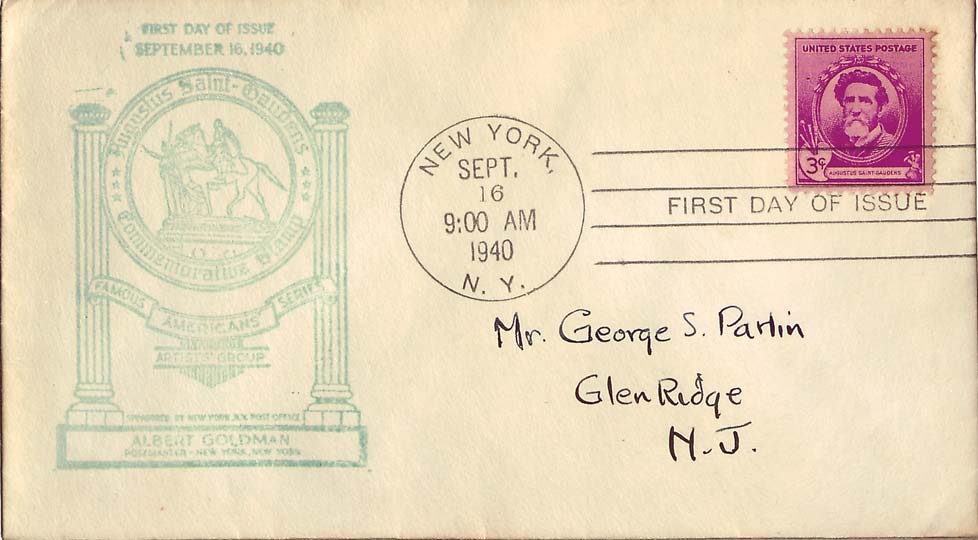 FIRST DAY OF ISSUE
SEPTEMBER 16, 1940
Augustus Saint-Gaudens
Commemorative Stamp
FAMOUS AMERICANS SERIES
ARTISTS' GROUP
SPONSORED BY NEW YORK, N.Y. POST OFFICE
ALBERT GOLDMAN
POSTMASTER - NEW YORK, NEW YORK
NEW YORK,
SEPT.
16
9:00 AM
1940
N. Y.
UNITED STATES POSTAGE
3¢
AUGUSTUS SAINT-GAUDENS
FIRST DAY OF ISSUE
Mr. George S. Parlin
Glen Ridge
N.J.